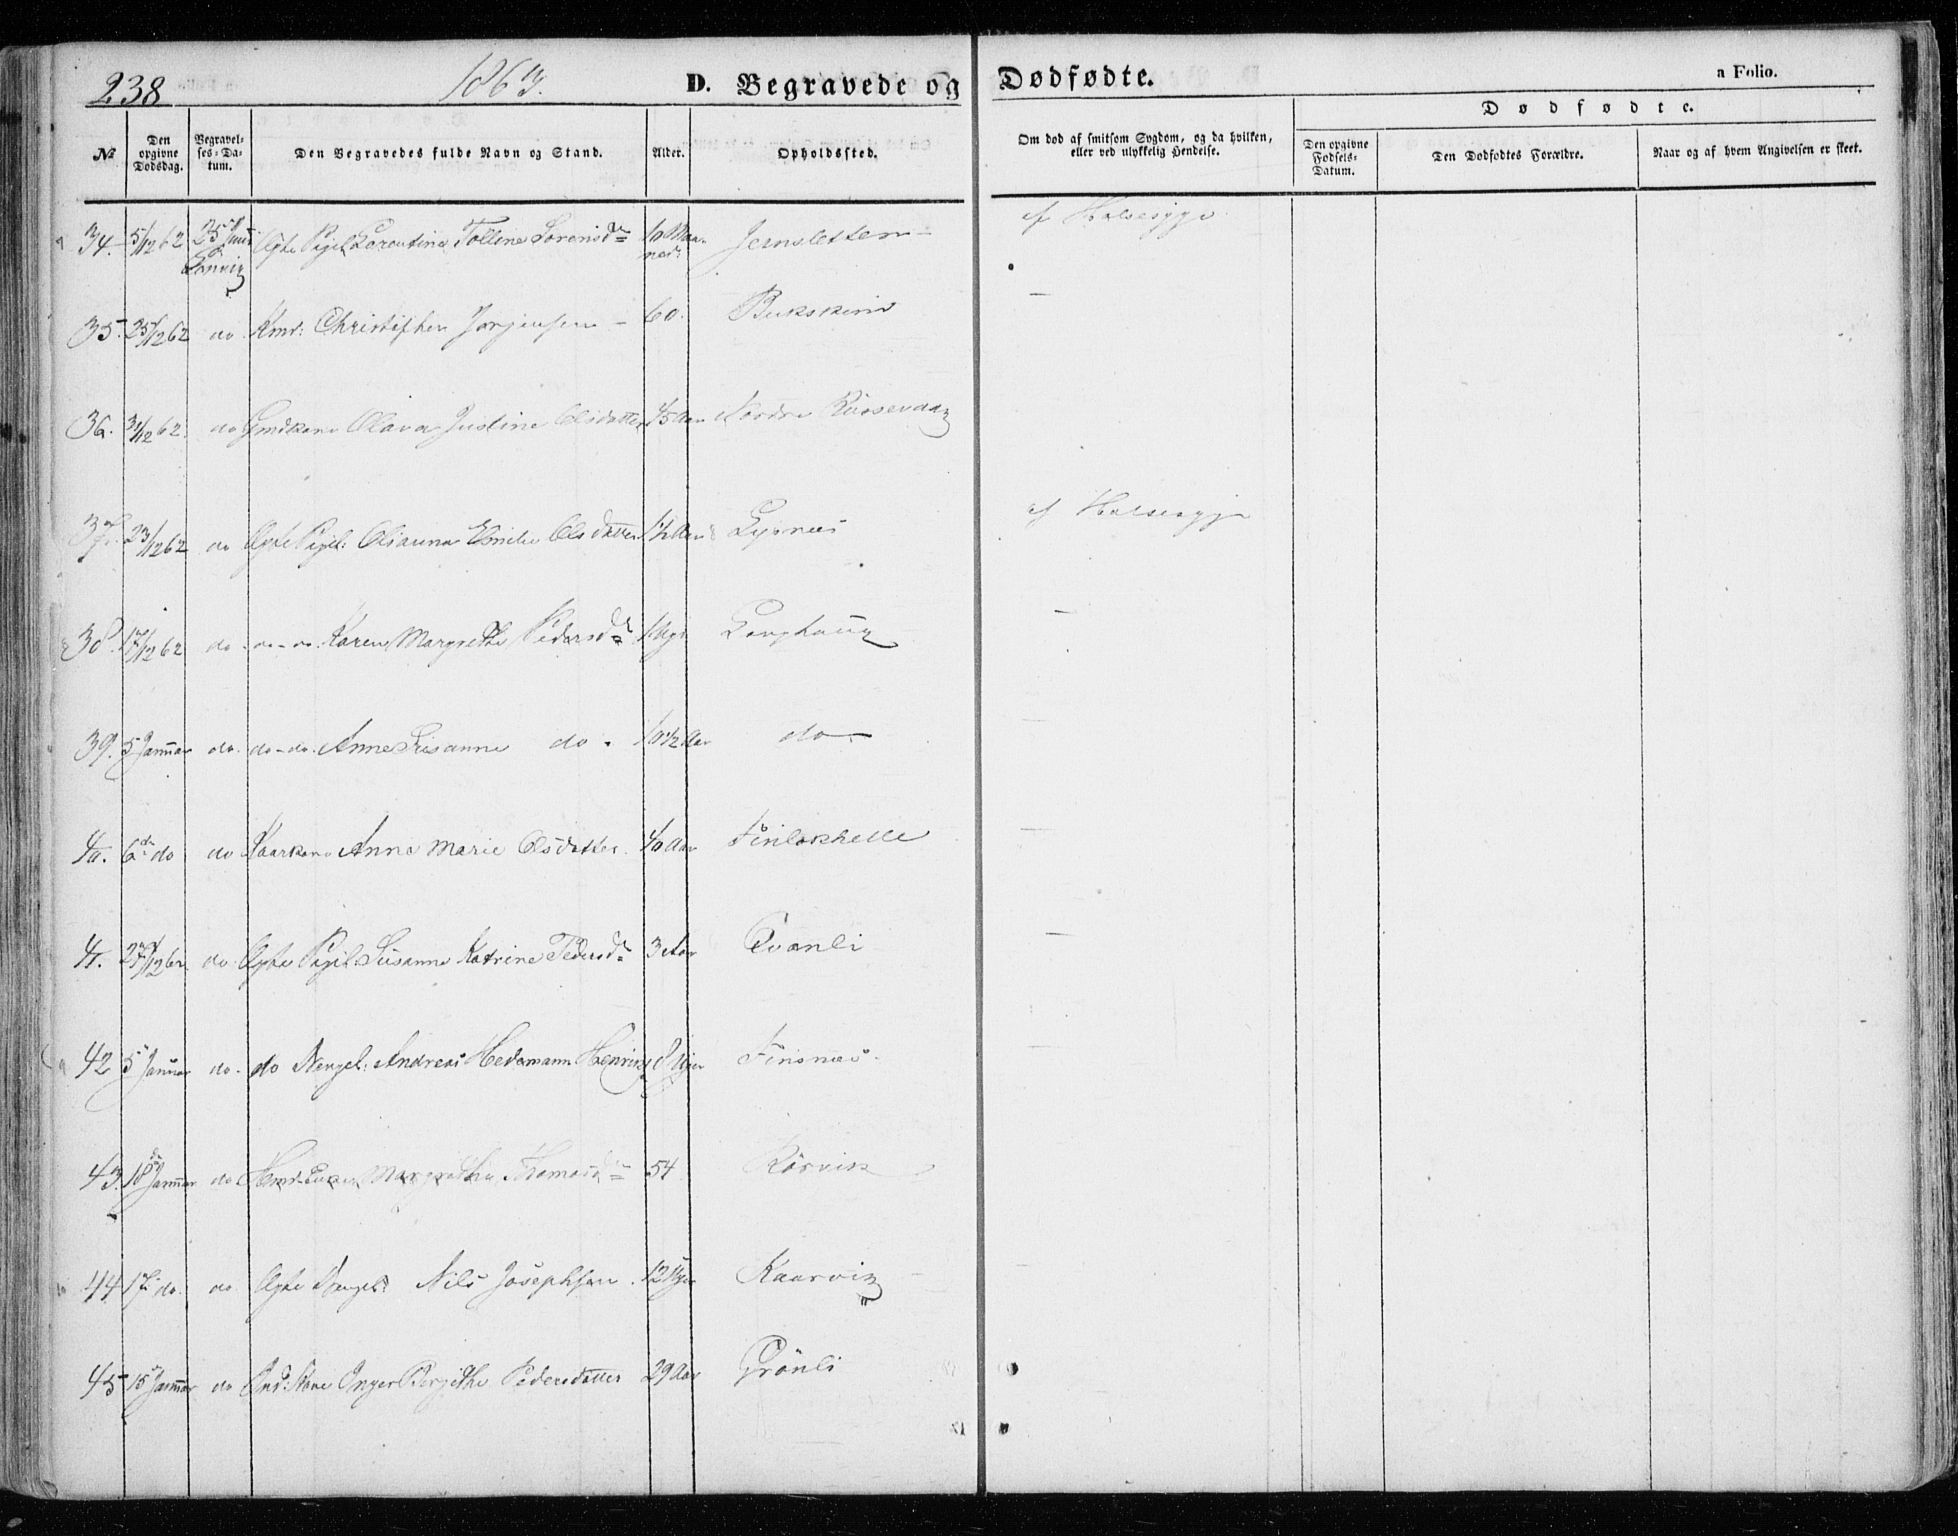 238 1863. D. Begravede og Dødfødte. a Folio.
No Den opgivne Dødsdag. Begravelses-Datum. Den Begravedes fulde Navn og Stand. Alder. Opholdssted. Om død af smitsom Sygdom, og da hvilken, eller ved ulykkelig Hendelse. Dødfødte. Den opgivne Fødsels-Datum. Den Dødfødtes Forældre. Naar og af hvem Angivelsen er skeet.
34. 5/12 62 25 Jan Ægte Pigeb. Lorentina Tolline Sørensdr 10 Maaneder Jernsletten af Halssyge
35. 25/12 62 do Kmd: Christopher Jørgensen 60. Bukskind —
36. 31/12 62. do Gmdkone Olava Justine Olsdatter 45 Aar Nordre —
37. 23/12 62 do Ægte Pigeb: Olianna Emilie Olsdatter 1½ Aar Lysnes af Halssyge
38. 17/12 62 do - do - do. Karen Margrethe Pedersdr Langhaug —
39. 5 Januar do. do - do. Anne Susanne do. 10½ Aar do —
40. 6te do do Kaarkone Anne Marie Olsdatter. 40 Aar Finlakhelle —
41. 27/12 62. do. Ægte Pigeb. Susanne Katrine Pedersdr 3 Aar Qvanli —
42 5 Januar do. do Drengeb: Andreas Hedemann Finsnes.
43. 18de Januar do Margrethe Thomasdr 54 Rørvik
44. 17. do. do. Ægte Drengeb: Nils Josephsen. 12 Kaarvig
45 15 Januar do Ind: Kone Inger Bergithe Pedersdatter 29 Aar Grønli